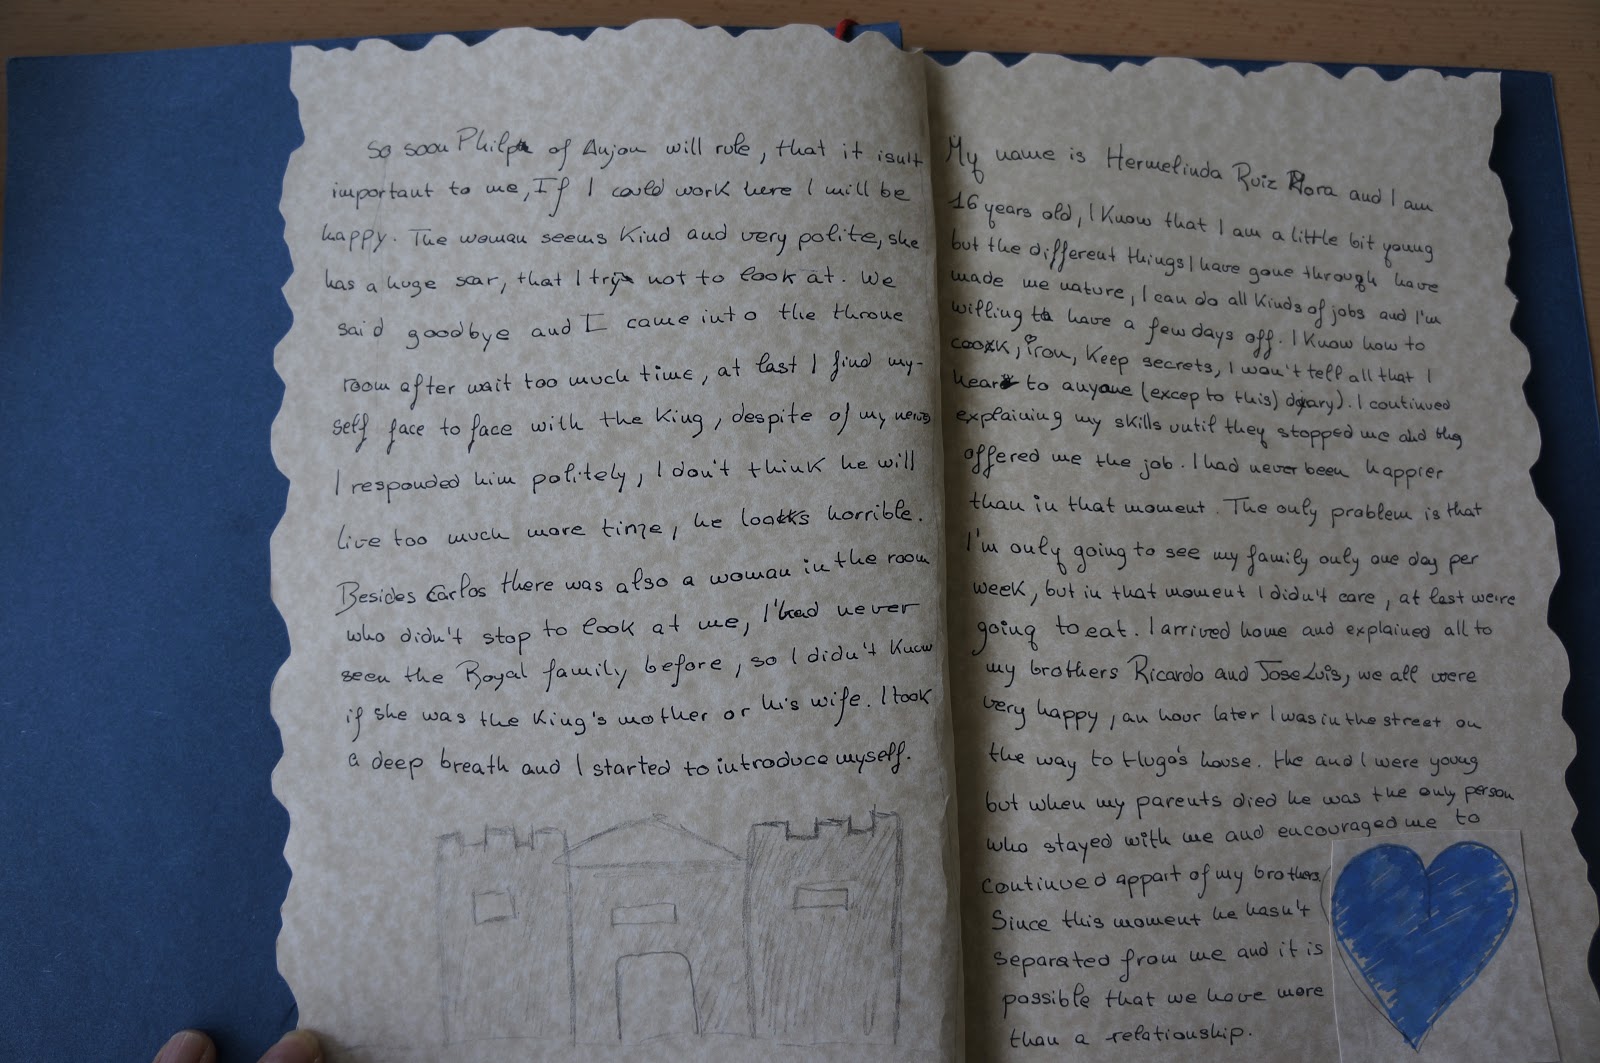 So soon Philpe of Anjou will rule, that it isn't
important to me, If I could work here I will be
happy. The woman seems kind and very polite, she
has a huge scar, that I try not to look at. We
said goodbye and I came into the throne
room after wait too much time, at last I find my-
self face to face with the King, despite of my nervs
I responded him politely, I don't think he will
live too much more time, he looks horrible.
Besides Carlos there was also a woman in the room
who didn't stop to look at me, I had never
seen the Royal family before, so I didn't know
if she was the King's mother or his wife. I took
a deep breath and I started to introduce myself.
My name is Hermelinda Ruiz Rora and I am
16 years old, I know that I am a little bit young
but the different things I have gone through have
made me nature, I can do all kinds of jobs and I'm
willing to have a few days off. I know how to
cook, iron, keep secrets, I won't tell all that I
hear to anyone (excep to this) dyary). I continued
explaining my skills until they stopped me and they
offered me the job. I had never been happier
than in that moment. The only problem is that
I'm only going to see my family only one day per
week, but in that moment I didn't care, at last we're
going to eat. I arrived home and explained all to
my brothers Ricardo and Jose Luis, we all were
very happy, an hour later I was in the street on
the way to Hugo's house. He and I were young
but when my parents died he was the only person
who stayed with me and encouraged me to
continued appart of my brothers.
Since this moment he hasn't
separated from me and it is
possible that we have more
than a relationship.